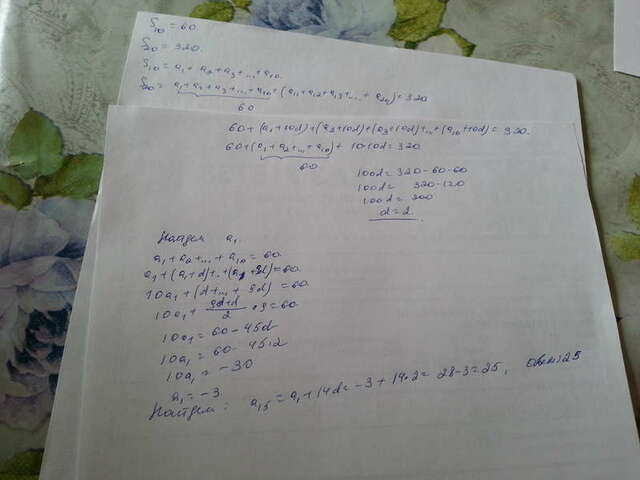 S₁₀ = 60.
S₂₀ = 320.
S₁₀ = a₁ + a₂ + a₃ + ... + a₁₀.
S₂₀ = a₁ + a₂ + a₃ + ... + a₁₀ + (a₁₁ + a₁₂ + a₁₃ + ... + a₂₀) = 320
60
60 + (a₁ + 10d) + (a₂ + 10d) + (a₃ + 10d) + ... + (a₁₀ + 10d) = 320.
60 + (a₁ + a₂ + ... + a₁₀) + 10·10d = 320
60.
100d = 320 - 60 - 60
100d = 320 - 120
100d = 200
d = 2.
Найдем a₁.
a₁ + a₂ + ... + a₁₀ = 60.
a₁ + (a₁ + d) + ... + (a₁ + 9d) = 60.
10a₁ + (d + ... + 9d) = 60.
10a₁ + (9d + d)/2 · 9 = 60
10a₁ = 60 - 45d
10a₁ = 60 - 45·2
10a₁ = -30
a₁ = -3.
Найдем: a₁₅ = a₁ + 14d = -3 + 14·2 = 28 - 3 = 25, Ответ: 25